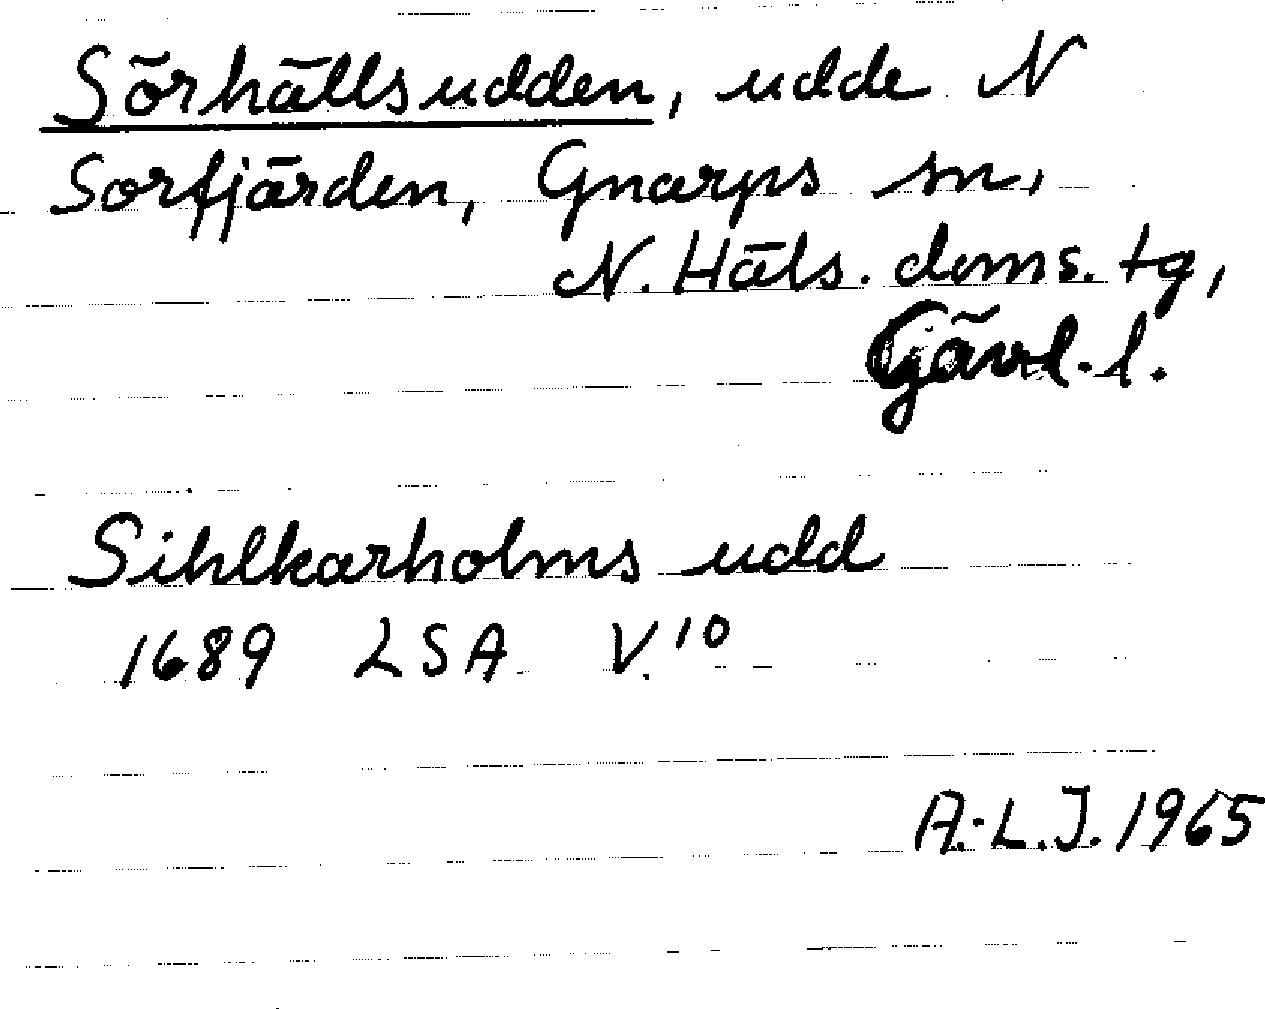 Sörhällsudden, udde N
Sorfjärden, Gnarps sn,
N. Häls. doms. tg,
Gävl. l.
Sihlkarholms udd
1689 LSA V.10
A.-L.J. 1965